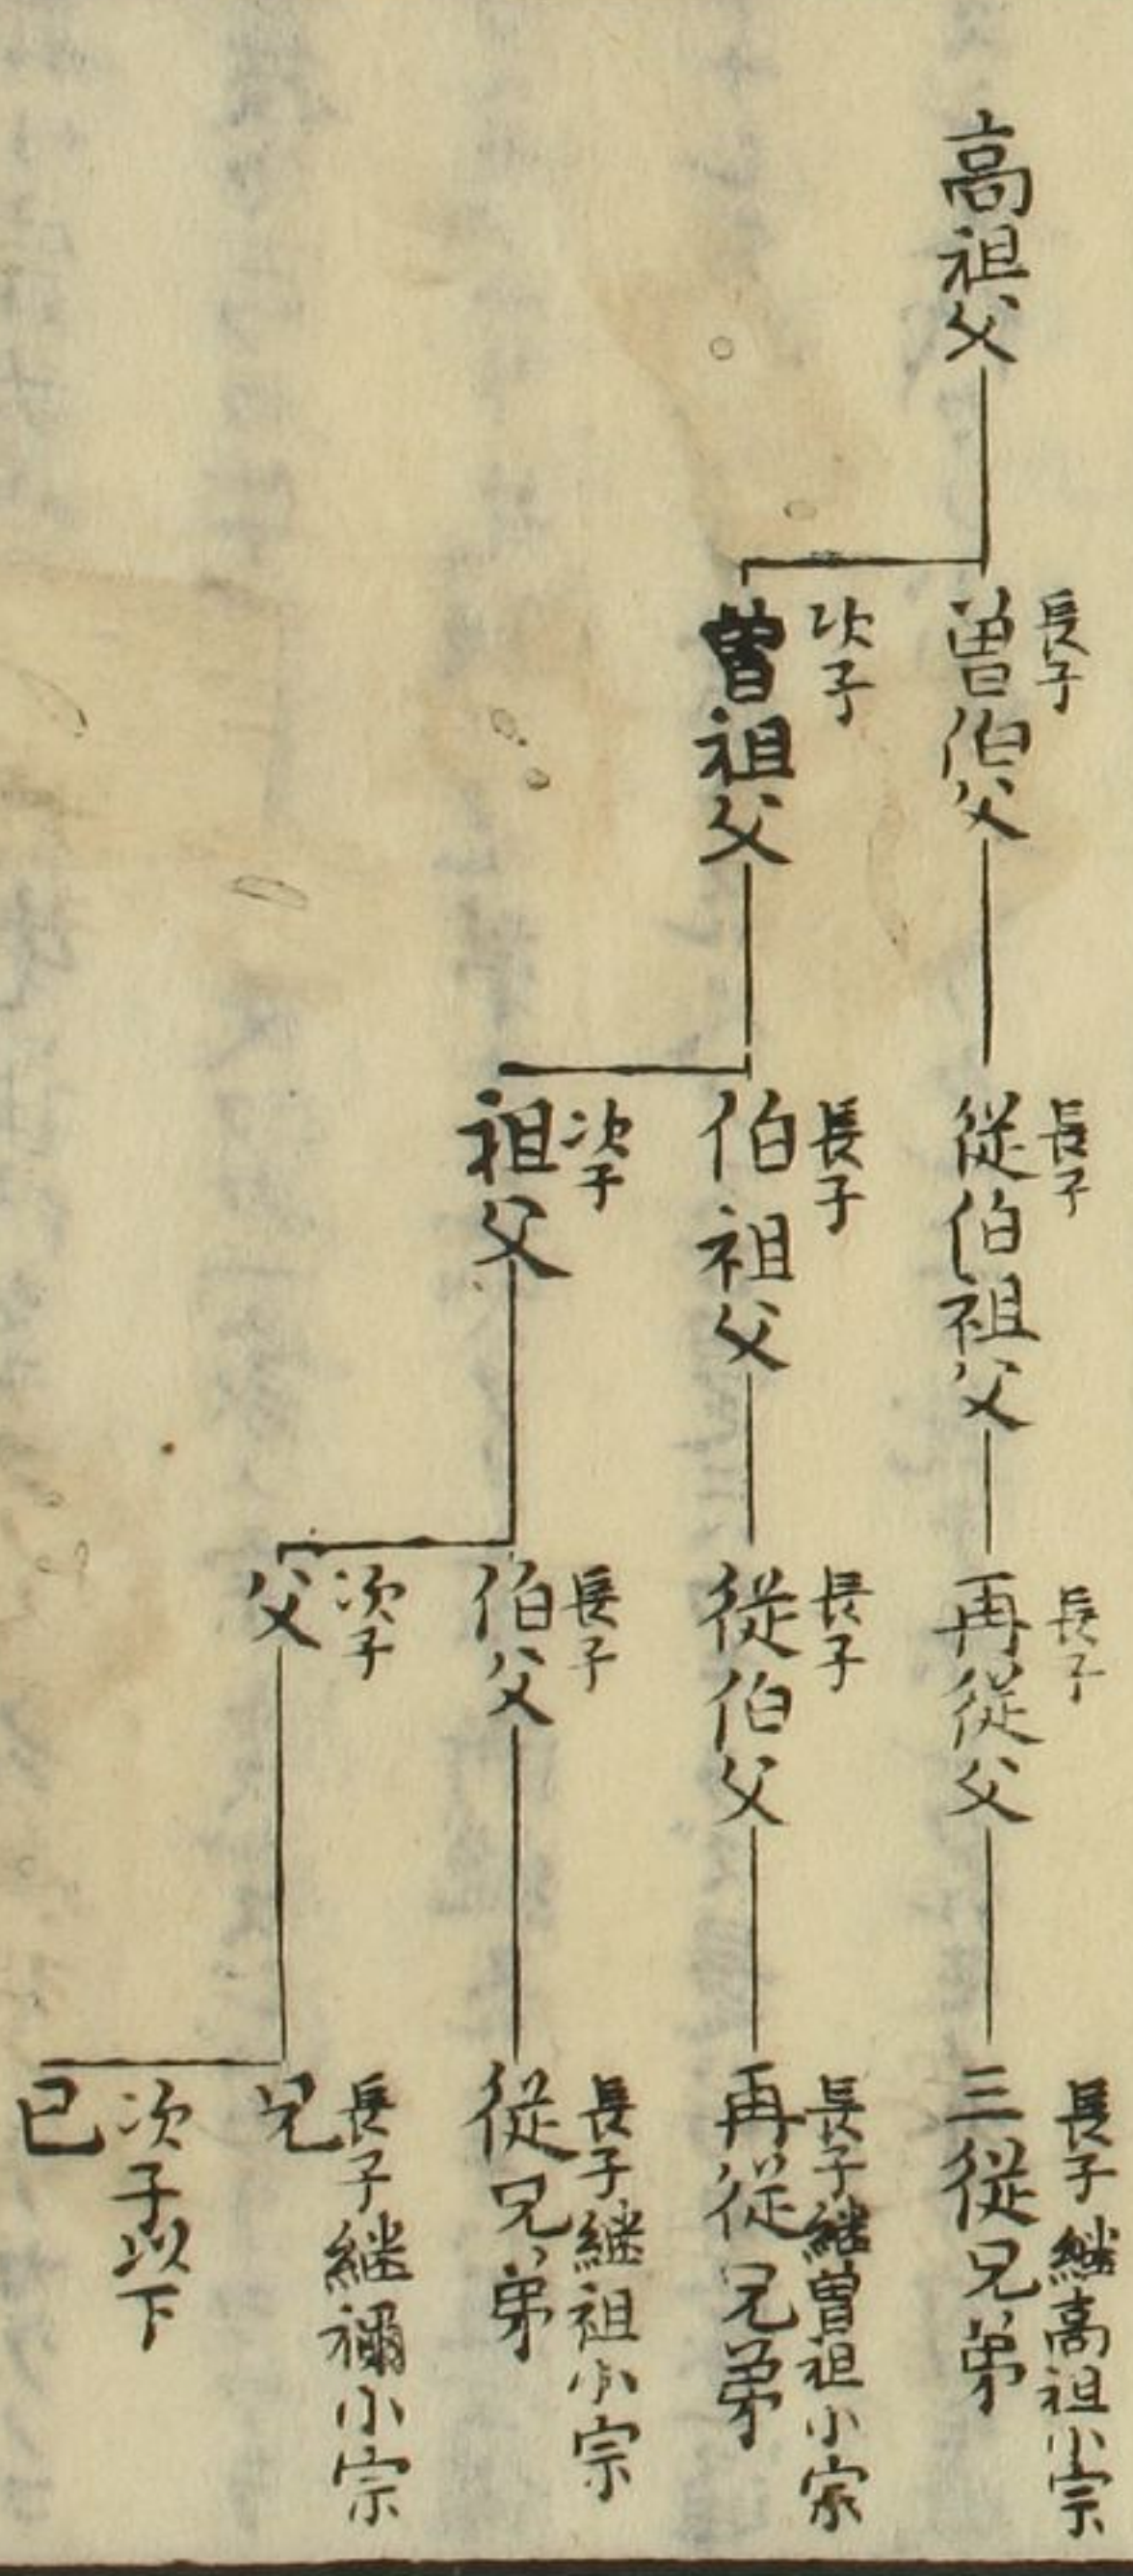 高祖父
長子
曽伯父
次子
曽祖父
長子
従伯祖父
長子
伯祖父
次子
祖父
長子
再従父
長子
従伯父
長子
伯父
次子
父
長子継高祖小宗
三従兄弟
長子継曽祖小宗
再従兄弟
長子継祖小宗
従兄弟
長子継禰小宗
兄
次子以下
己